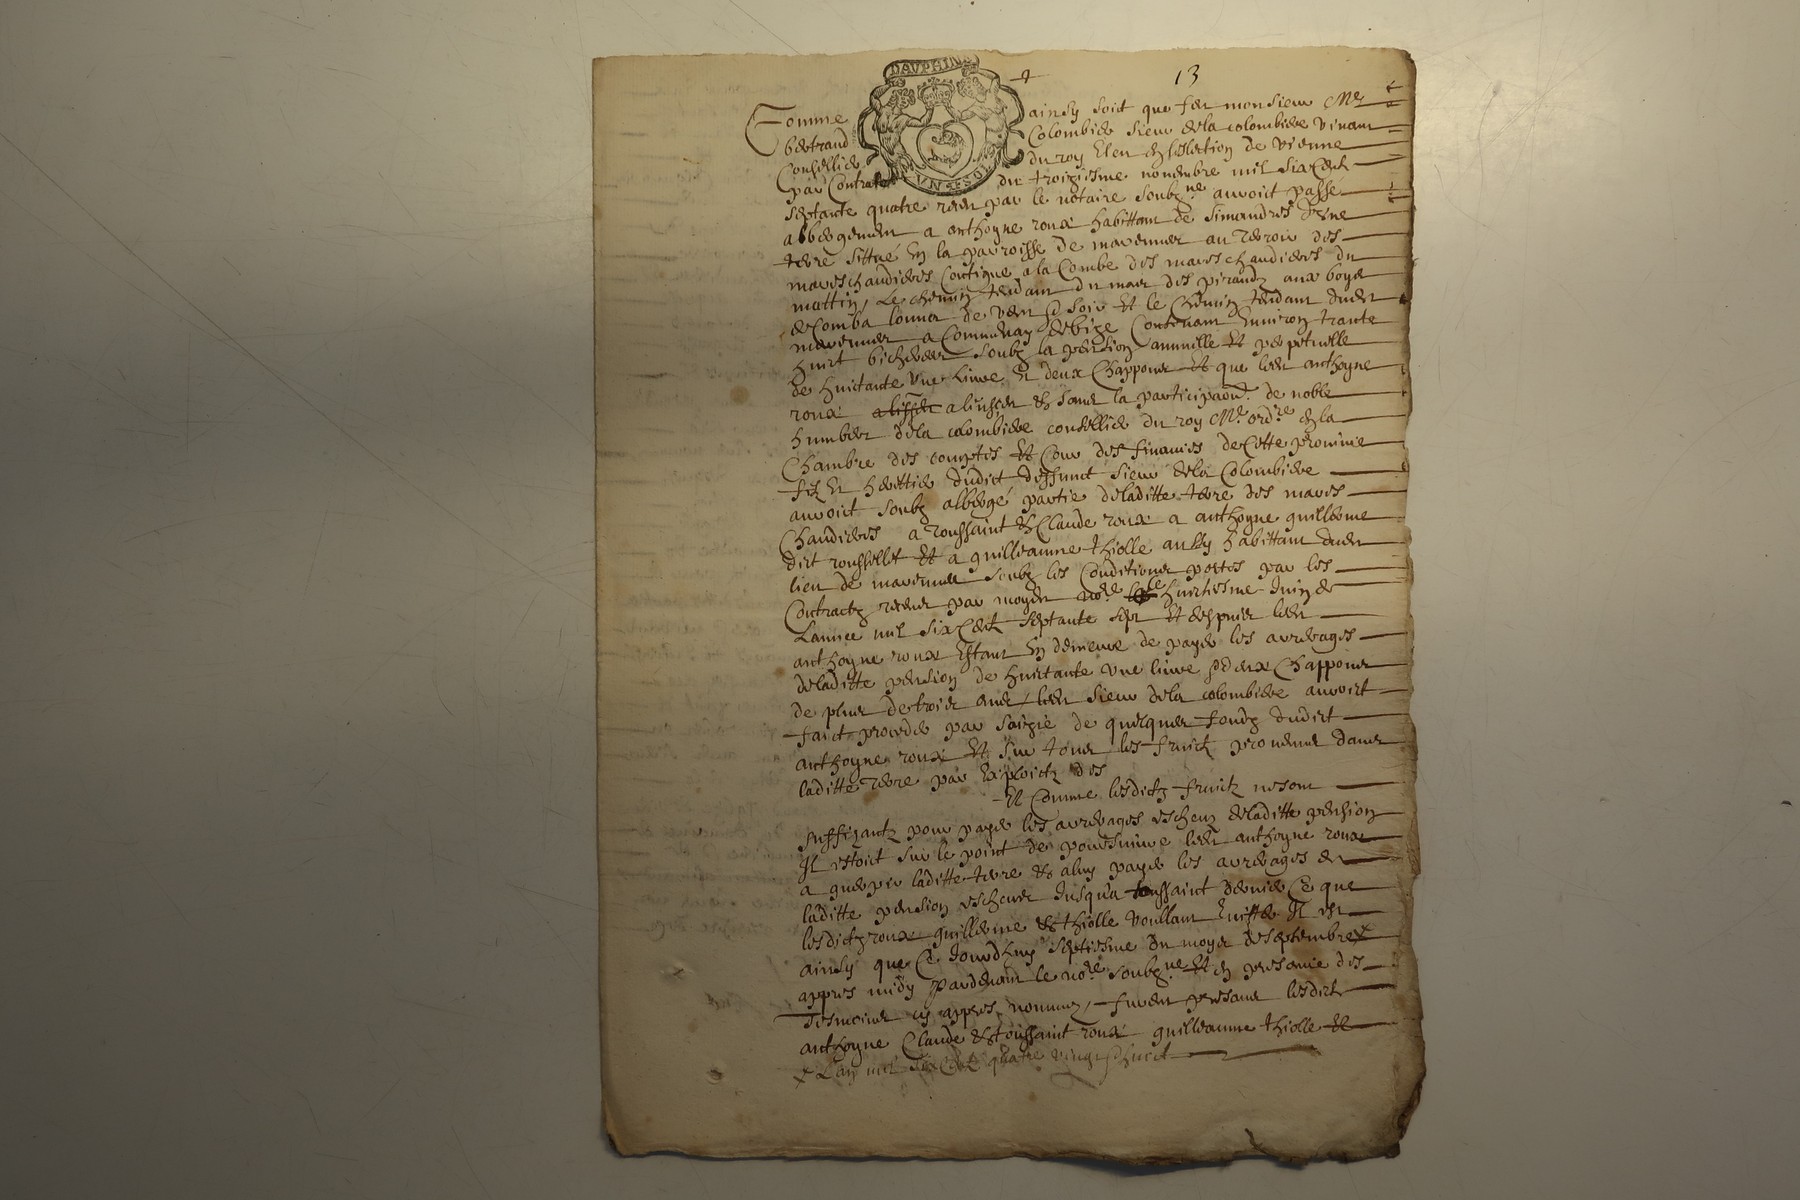 13
DAVPHINE
VN SOL
Comme ainsy soit que feu monsieur Me
bertrand Colombier sieur dela colombiere vivant
Conseillier du roy Eleu En lelection de vienne
par Contrat du troiziesme novembre mil six cent
septante quatre receu par le notaire soubzne auroit passé
albergement a anthoyne roux habittant de simandres dune
terre sittué En la parroisse de marennes au terroir des
mareschaudieres Contigue a la Combe des mareschaudieres du
mattin, Le chemin tendant du mas des pirauds aux boys
de Comba lonnes de vent & soir Et le Chemin tendant dudit
marennes a Communay de bize Contenant Environ trante
huict bicherees soubz la pension annuelle Et perpetuelle
de huictante une Livre Et deux Chappons Et que ledit anthoyne
roux a l'isser a l'insceu & sans la participaon de noble
humbert dela colombiere conseillier du roy Me ordre En la
Chambre des comptes Et Cour des finances de Cette province
filz Et herittier dudict deffunct sieur dela Colombiere
auroict soubz albergé partie deladitte terre des mares
chaudieres a toussaint & Claude roux a anthoyne guillerme
dict rousselet Et a guilleaume thiolle aussy habittant dudit
lieu de marennes soubz les Conditions portés par les
Contractz receus par moydit nore le huictiesme Juin de
Lannee mil six cent septante sept Et despuis ledit
anthoyne roux Estant En demeure de payer les arrerages
deladitte pension de huictante une livre & deux Chappons
de plus de trois ans ledit sieur dela colombiere auroict
faict proceder par saizie de quelques fondz dudict
anthoyne roux Et sur tous les fruictz provenus dans
laditte terre par Exploictz des
Et Comme lesdictz fruictz ne sont
suffizantz pour payer les arrerages escheuz deladitte pension
Il estoict sur le point de poursuivre ledit anthoyne roux
a guerpir laditte terre & a luy payer les arrerages de
laditte pension escheus Jusqua toussaint dernier Ce que
lesdictz roux guillerme & thiolle voullant Eviter Il est
ainsy que Ce Jourdhuy septiesme du moys de septembre x
appres midy pardevant le nore soubzne Et En presance des
tesmoins cy appres nommez, furent presans lesdict
anthoyne Claude & toussaint roux guilleaume thiolle Et
x Lan mil six Cent quatre vingt & huict